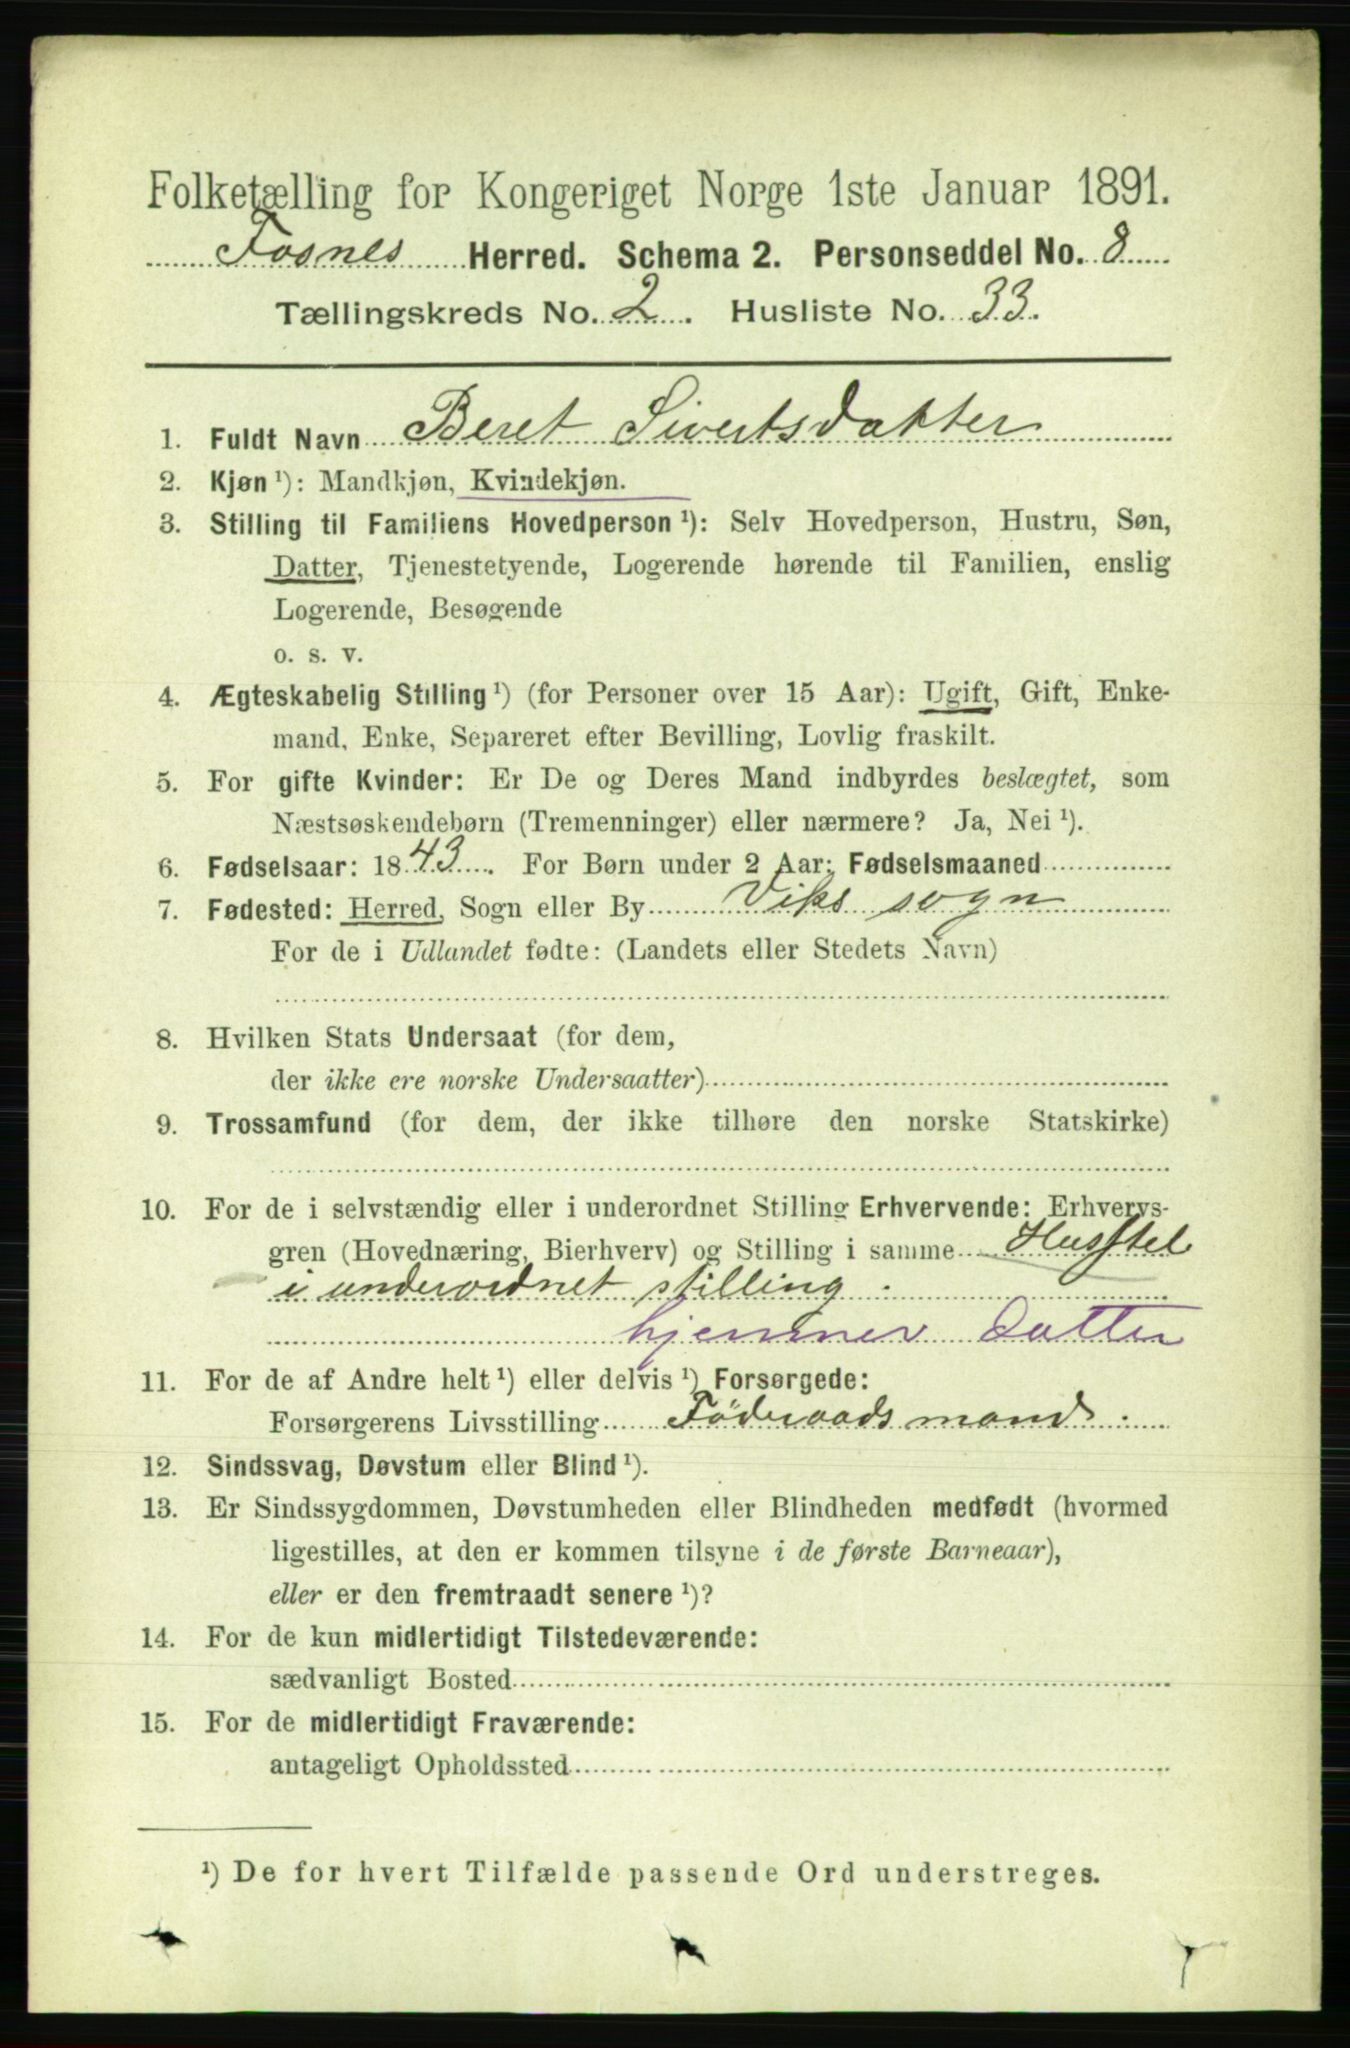 Folketælling for Kongeriget Norge 1ste Januar 1891.
Fosnes Herred. Schema 2. Personseddel No. 8
Tællingskreds No. 2. Husliste No. 33.
1. Fuldt Navn Beret Sivertsdatter
2. Kjøn ¹): Mandkjøn, Kvindekjøn.
3. Stilling til Familiens Hovedperson ¹): Selv Hovedperson, Hustru, Søn,
Datter, Tjenestetyende, Logerende hørende til Familien, enslig
Logerende, Besøgende
o. s. v.
4. Ægteskabelig Stilling ¹) (for Personer over 15 Aar): Ugift, Gift, Enke-
mand, Enke, Separeret efter Bevilling, Lovlig fraskilt.
5. For gifte Kvinder: Er De og Deres Mand indbyrdes beslægtet, som
Næstsøskendebørn (Tremenninger) eller nærmere? Ja, Nei ¹).
6. Fødselsaar: 1843. For Børn under 2 Aar: Fødselsmaaned
7. Fødested: Herred, Sogn eller By Viks sogn
For de i Udlandet fødte: (Landets eller Stedets Navn)
8. Hvilken Stats Undersaat (for dem,
der ikke ere norske Undersaatter)
9. Trossamfund (for dem, der ikke tilhøre den norske Statskirke)
10. For de i selvstændig eller i underordnet Stilling Erhvervende: Erhvervs-
gren (Hovednæring, Bierhverv) og Stilling i samme Husstel
i underordnet stilling.
hjemmev datter
11. For de af Andre helt ¹) eller delvis ¹) Forsørgede:
Forsørgerens Livsstilling Föderaadsmand.
12. Sindssvag, Døvstum eller Blind ¹).
13. Er Sindssygdommen, Døvstumheden eller Blindheden medfødt (hvormed
ligestilles, at den er kommen tilsyne i de første Barneaar),
eller er den fremtraadt senere ¹)?
14. For de kun midlertidigt Tilstedeværende:
sædvanligt Bosted
15. For de midlertidigt Fraværende:
antageligt Opholdssted
¹) De for hvert Tilfælde passende Ord understreges.